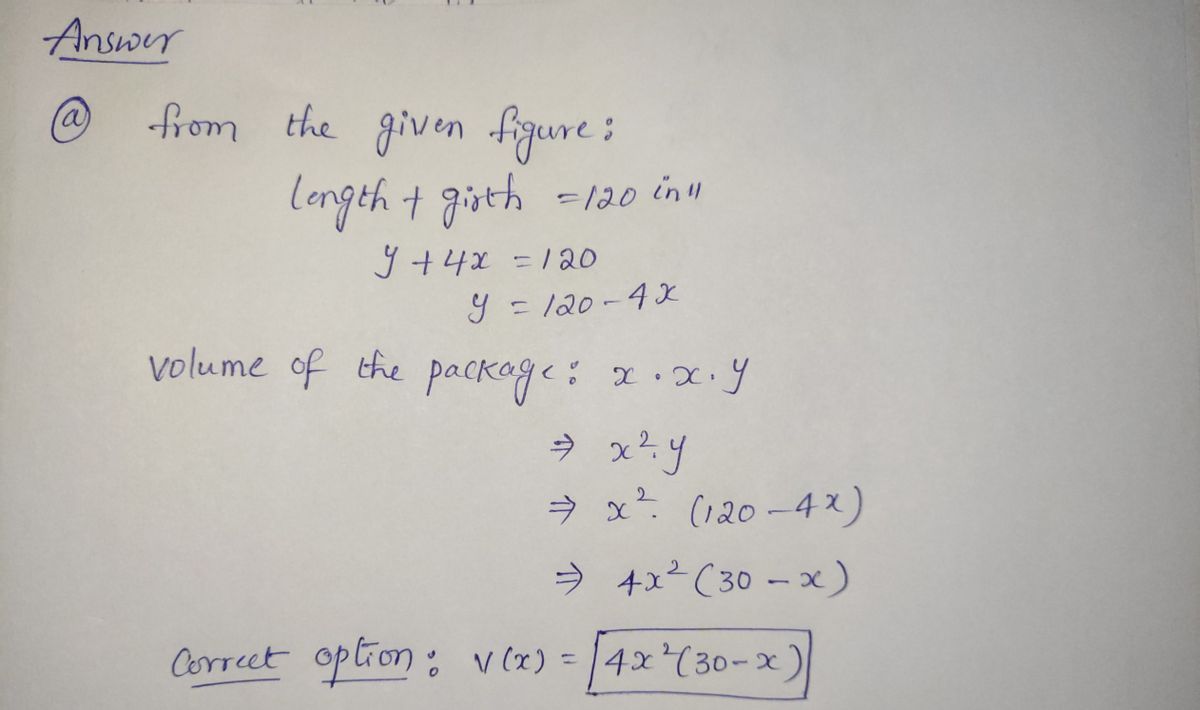 Answer
ⓐ from the given figure:
length + girth = 120 in"
y + 4x = 120
y = 120 - 4x
volume of the package: x · x · y
⇒ x². y
⇒ x². (120 - 4x)
⇒ 4x² (30 - x)
Correct option: v(x) = 4x²(30-x)